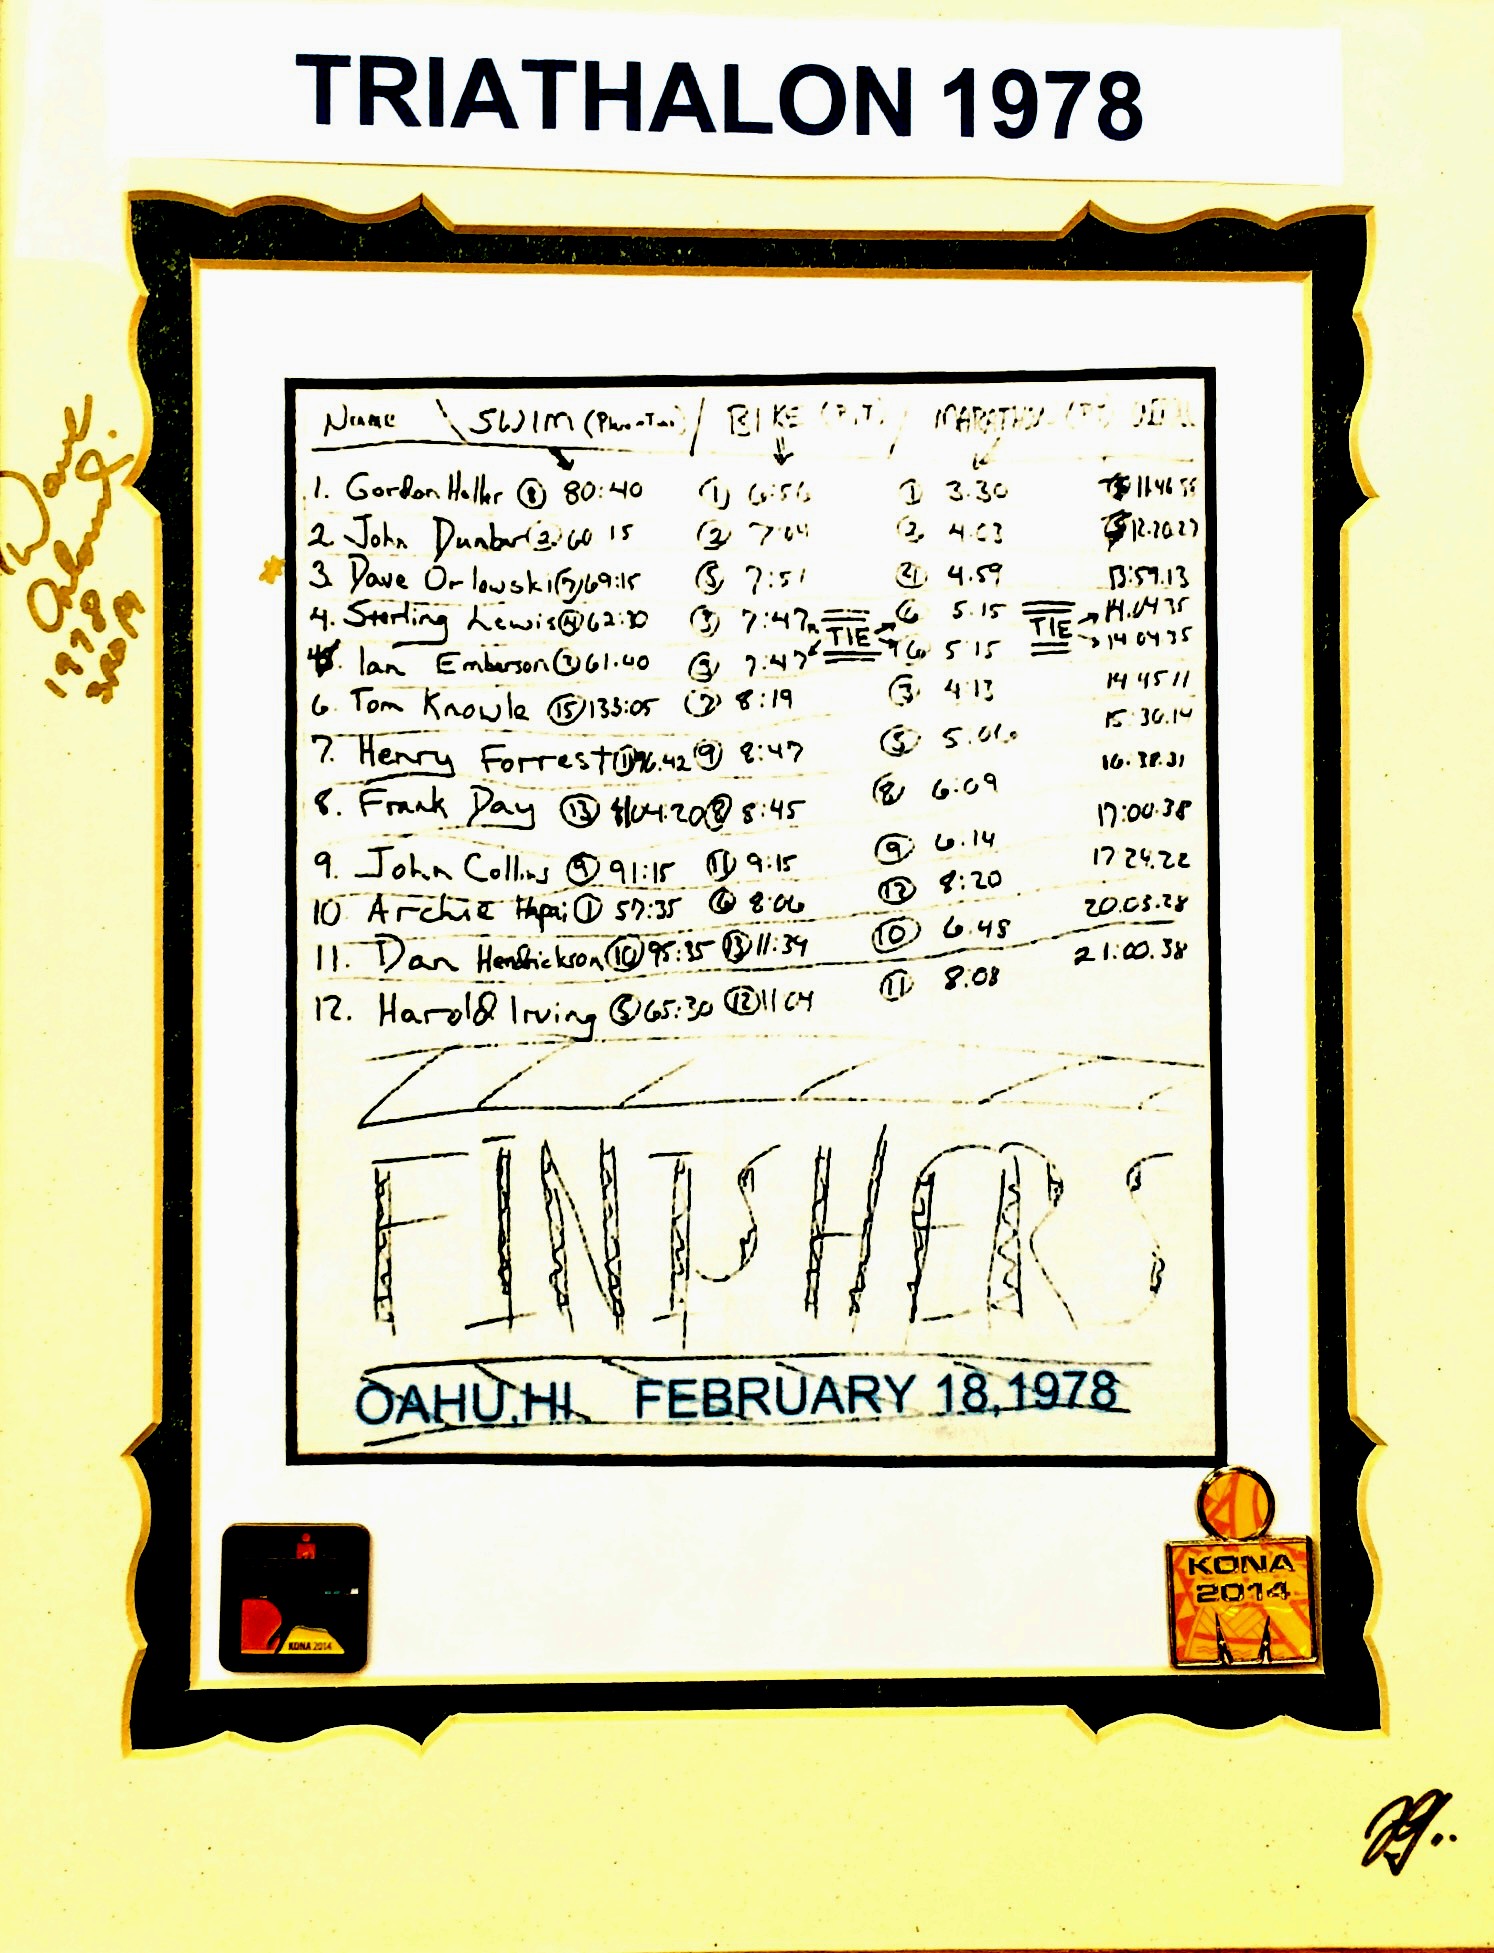 TRIATHALON 1978
NAME \ SWIM (Place-Time) / BIKE (P,T) / MARATHON (PT)
1. Gordon Haller ⑧ 80:40 ① 6:56 ① 3.30 11.46 55
2. John Dunbar ② 60 15 ② 7:04 ② 4.03 12.20.27
3. Dave Orlowski ⑦ 69:15 ⑤ 7:51 ④ 4.59 13:59.13
4. Sterling Lewis ④ 62:30 ③ 7:47 TIE ⑥ 5.15 TIE 14.04 35
Ian Emberson ③ 61.40 ③ 7:47 ⑥ 5 15 14 04 35
6. Tom Knowle ⑮ 133:05 ⑦ 8:19 ③ 4:13 14 45 11
7. Henry Forrest ⑪ 96.42 ⑨ 8:47 ⑤ 5.06 15:30.14
8. Frank Day ⑬ 104.20 ⑧ 8:45 ⑧ 6:09 16.38.31
9. John Collins ⑨ 91:15 ⑪ 9:15 ⑨ 6.14 17:00.38
10 Archie Hapai ① 57:35 ⑥ 8:06 ⑫ 8:20 17 24.22
11. Dan Hendrickson ⑩ 95:35 ⑬ 11:39 ⑩ 6.48 20.03.28
12. Harold Irving ⑤ 65:30 ⑫ 11 04 ⑪ 8:08 21:00.38
FINISHERS
OAHU,HI. FEBRUARY 18,1978
KONA 2014
KONA
2014
Dave
1978
3RD Pl